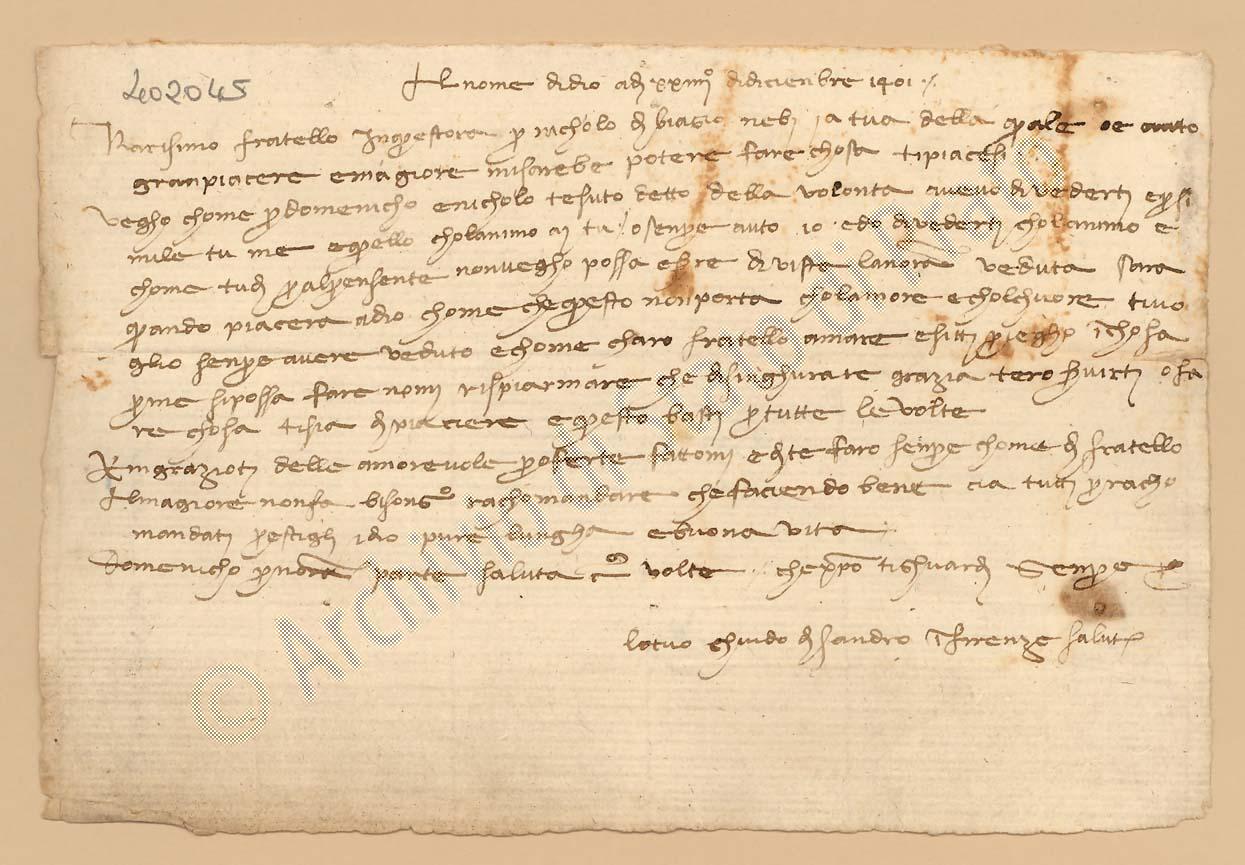 402045
Al nome di dio adi xxiiii° di dicienbre 1401.
Karisimo fratello In questora per nicholo di biagio nebi j a tua della quale oe auto
gran piacere e magiore mi sarebe potere fare chosa ti piacesi
Vegho chome per domenicho e nicholo te suto detto della volonta avevo di vederti e per si
mile tu me e quello chol animo ai tu o senpre auto io e do di vederti chol animo e
chome tu di per al presente non vegho possa esere di vista lanora veduta sara
quando piacera a dio chome che questo non porta chol amore e chol chuore ti vo
glio senpre avere veduto e chome charo fratello amare e si ti priegho j chosa
per me si possa fare non mi rispiarmare che di singhurare grazia tero servirti o fa
re chosa ti sia di piaciere e questo basti per tutte le volte
Ringrazioti delle amorevole proferte fattomi e di te faro senpre chome di fratello
Al magiore non fa bisongno rachomandare che faciendo bene cia tutti per racho
mandati prestigli idio pure lungha e buona vita
Domenicho per nostra parte saluta c° volte che xpo ti ghuardi senpre
lo tuo ghuido di sandro j firenze salute
© Archivio di Stato di Prato